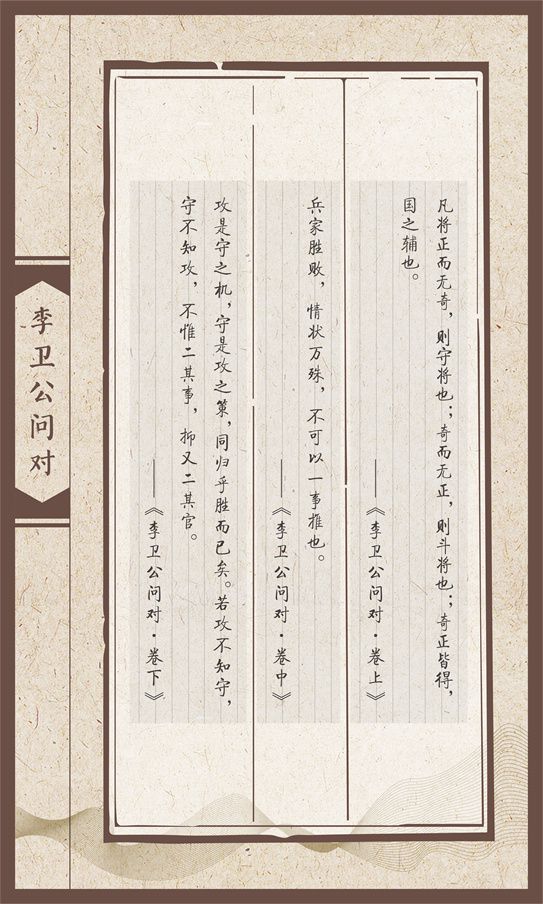 凡将正而无奇，则守将也；奇而无正，则斗将也；奇正皆得，
国之辅也。
——《李卫公问对·卷上》
兵家胜败，情状万殊，不可以一事推也。
——《李卫公问对·卷中》
攻是守之机，守是攻之策，同归乎胜而已矣。若攻不知守，
守不知攻，不惟二其事，抑又二其官。
——《李卫公问对·卷下》
李卫公问对